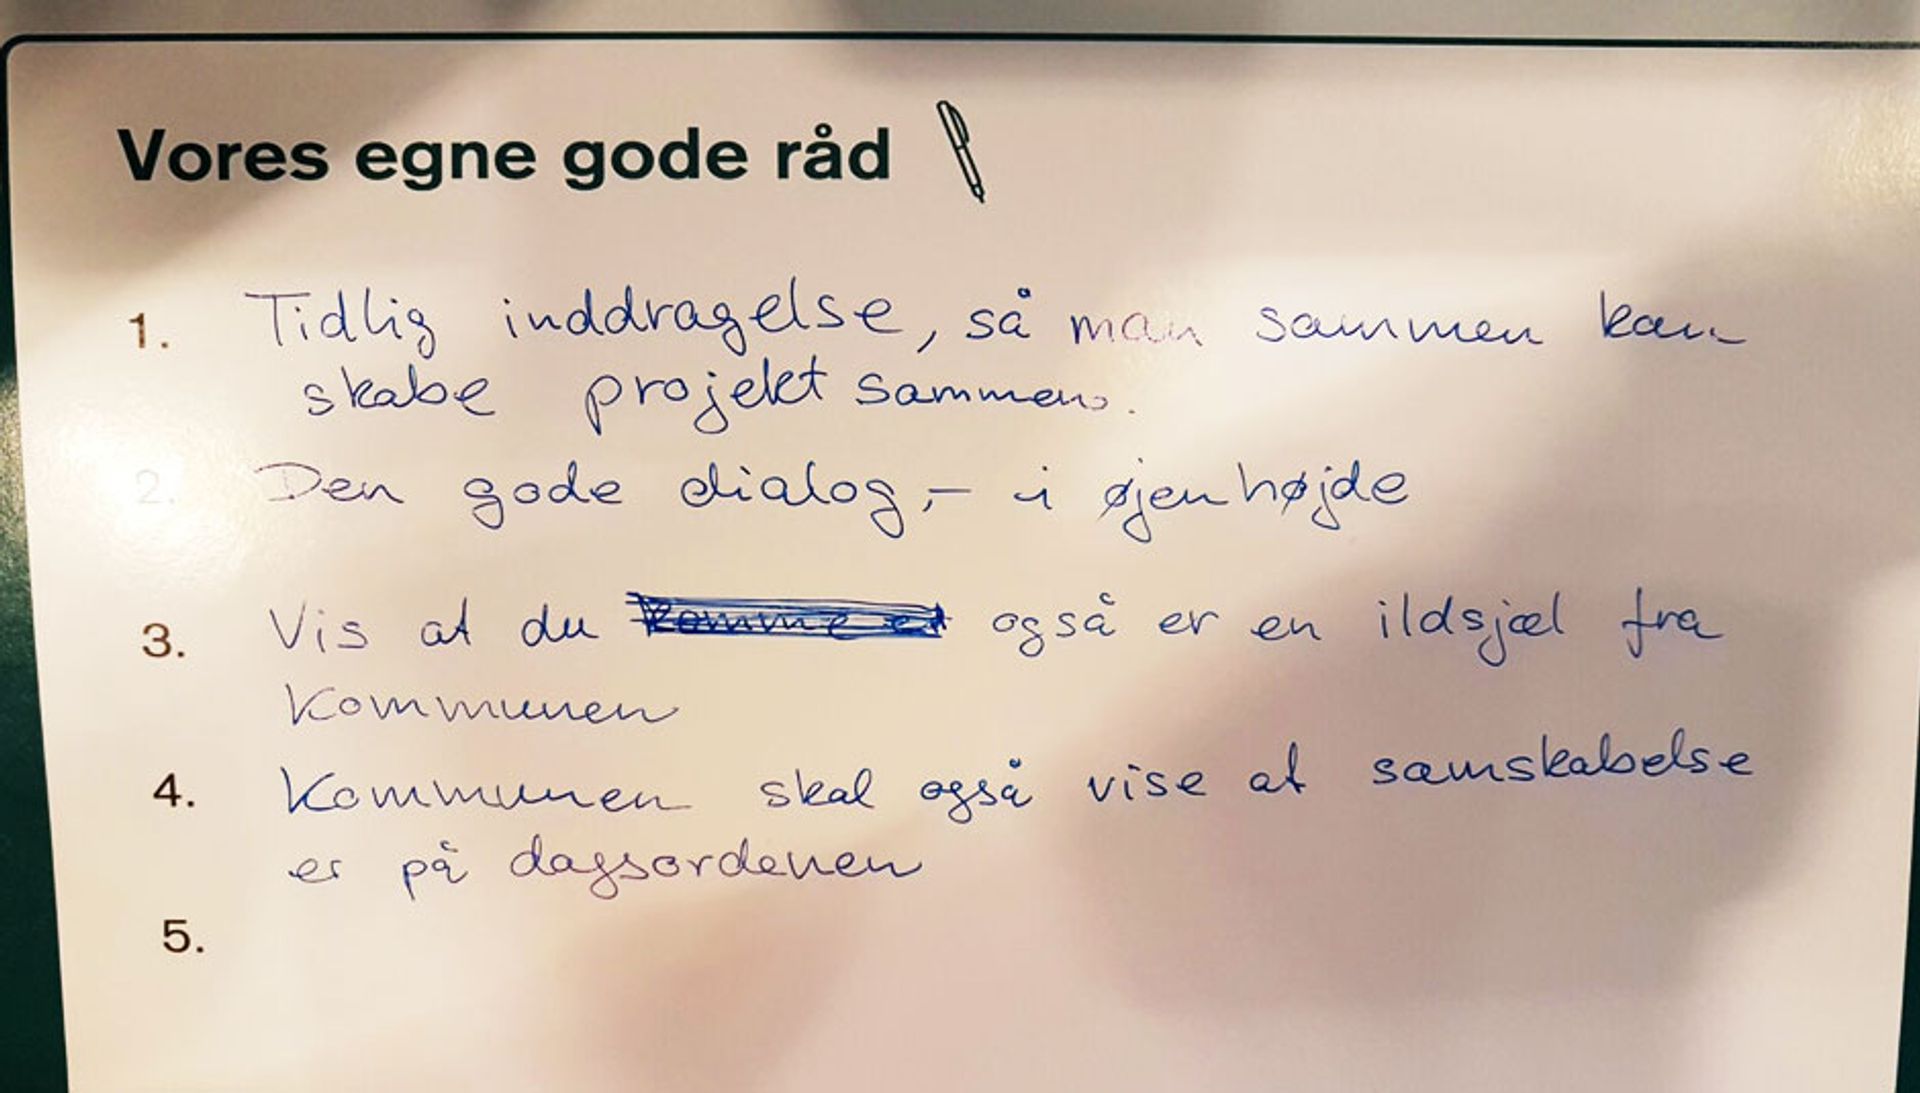 Vores egne gode råd
1. Tidlig inddragelse, så man sammen kan
skabe projekt sammen.
2. Den gode dialog, - i øjenhøjde
3. Vis at du også er en ildsjæl fra
kommunen
4. Kommunen skal også vise at samskabelse
er på dagsordenen
5.